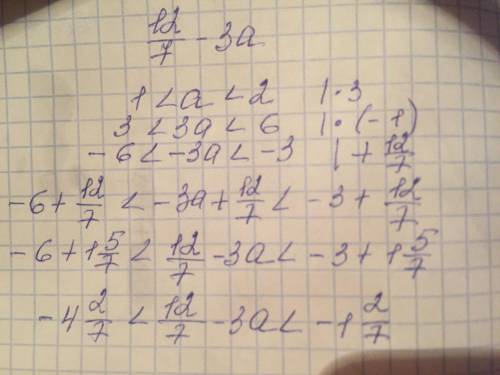 12/7 - 3a
1 < a < 2 | · 3
3 < 3a < 6 | · (-1)
-6 < -3a < -3 | + 12/7
-6 + 12/7 < -3a + 12/7 < -3 + 12/7
-6 + 1 5/7 < 12/7 - 3a < -3 + 1 5/7
-4 2/7 < 12/7 - 3a < -1 2/7